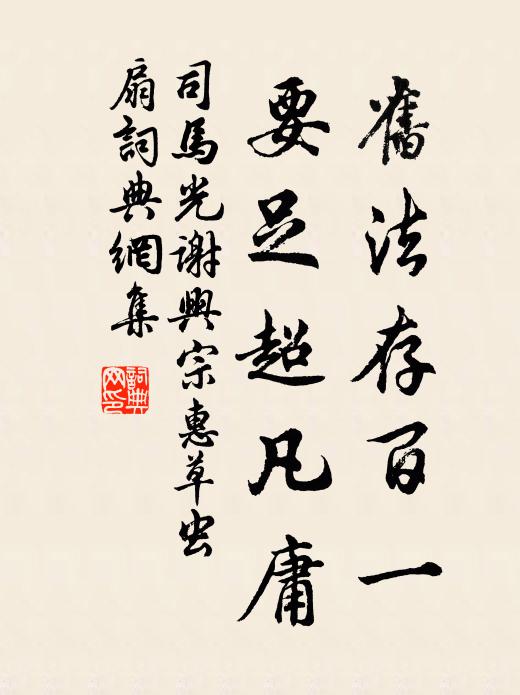 舊法存百一
要足超凡庸
司馬光謝興宗惠草虫
扇詞典網集
詞典網印